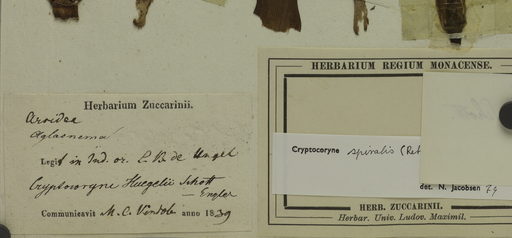 Herbarium Zuccarinii.
Aroideae
Aglaonema
Legit in Ind. or. C. B. de Hugel
Cryptocoryne Huegelii Schott
— Engler
Communicavit M. C. anno 1839
HERBARIUM REGIUM MONACENSE.
Cryptocoryne spiralis (Ret
det. N. Jacobsen 79
HERB. ZUCCARINII.
Herbar. Univ. Ludov. Maximil.